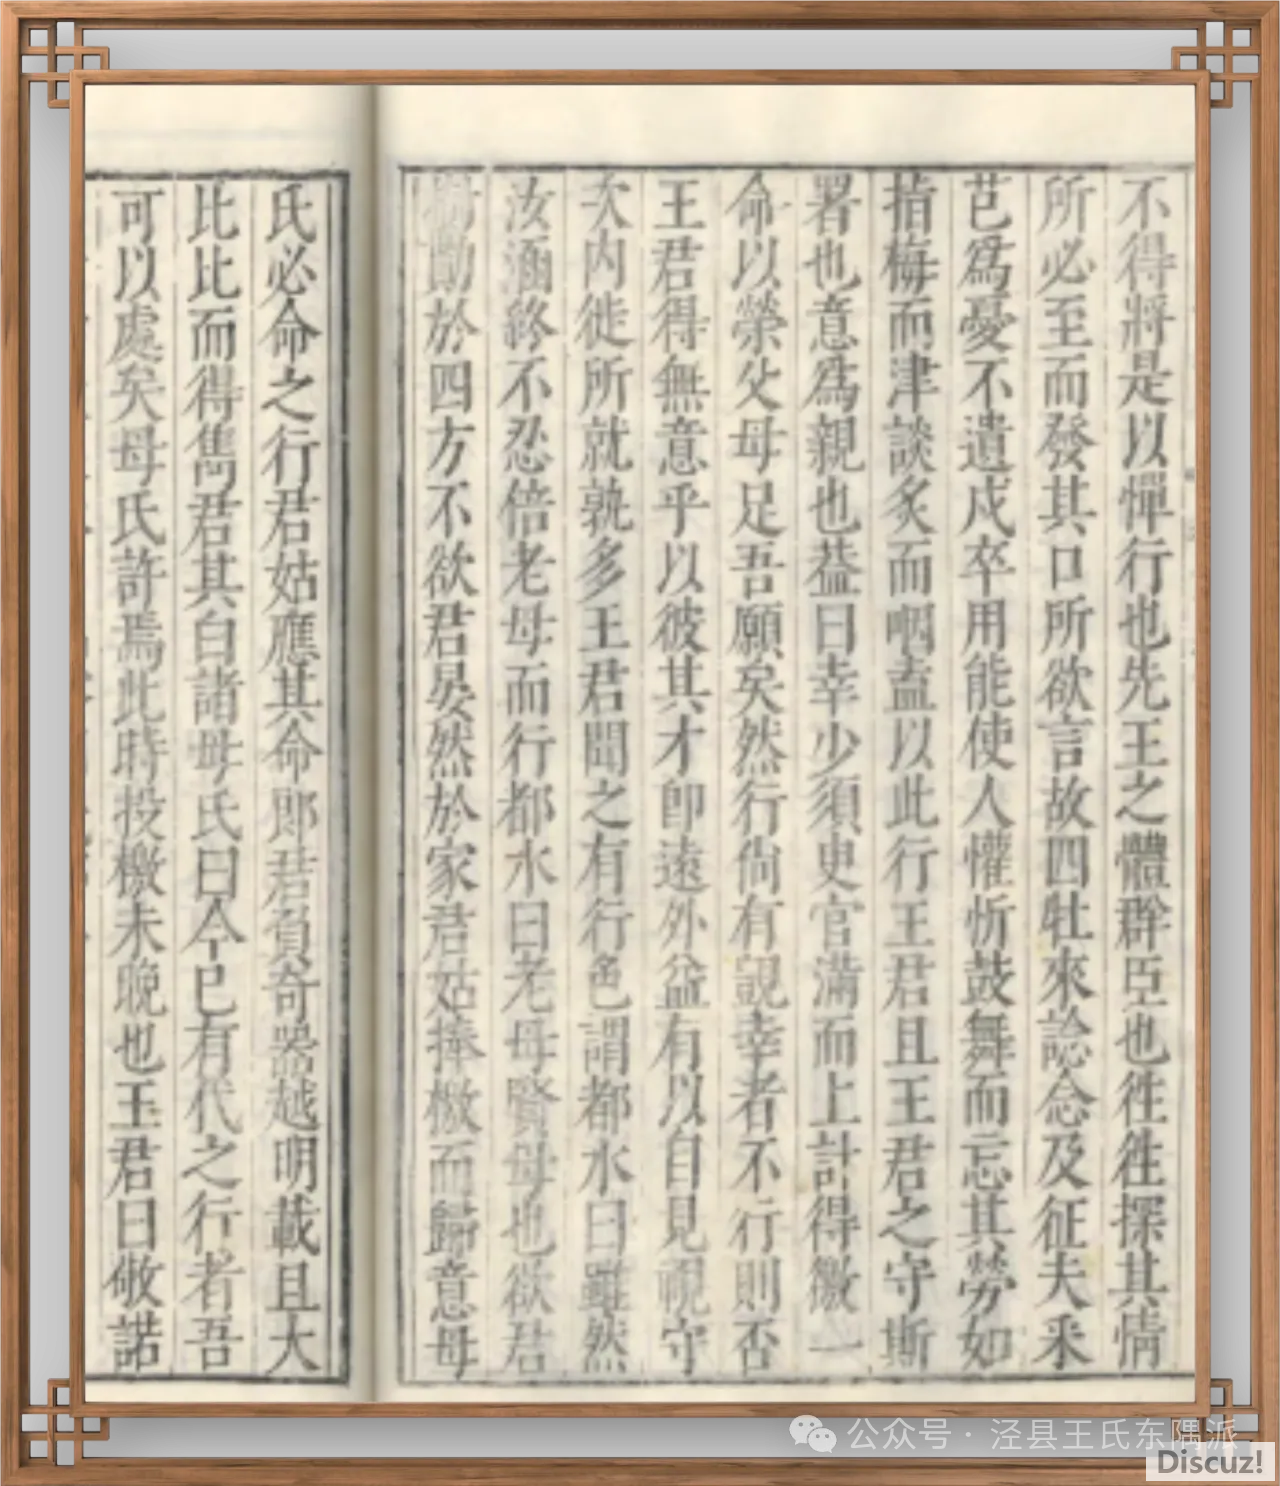 不得將是以憚行也先王之體群臣也徃徃探其情
所必至而發其口所欲言故四牡來諗念及征夫采
芑爲憂不遺戍卒用能使人懽忻鼓舞而忘其勞如
指梅而津談炙而咽盍以此行王君且王君之守斯
署也意爲親也葢曰幸少須臾官滿而上計得徼一
命以榮父母足吾願矣然行尚有覬幸者不行則否
王君得無意乎以彼其才卽遠外益有以自見視守
次内徙所就孰多王君聞之有行色謂都水曰雖然
汝涵終不忍倍老母而行都水曰老母賢母也欲君
勳於四方不欲君晏然於家君姑捧檄而歸意母
氏必命之行君姑應其命郎君負奇器越明載且大
比比而得雋君其白諸母氏曰今巳有代之行者吾
可以處矣母氏許焉此時投檄未晚也王君曰敬諾
公众号·泾县王氏东隅派
Discuz!